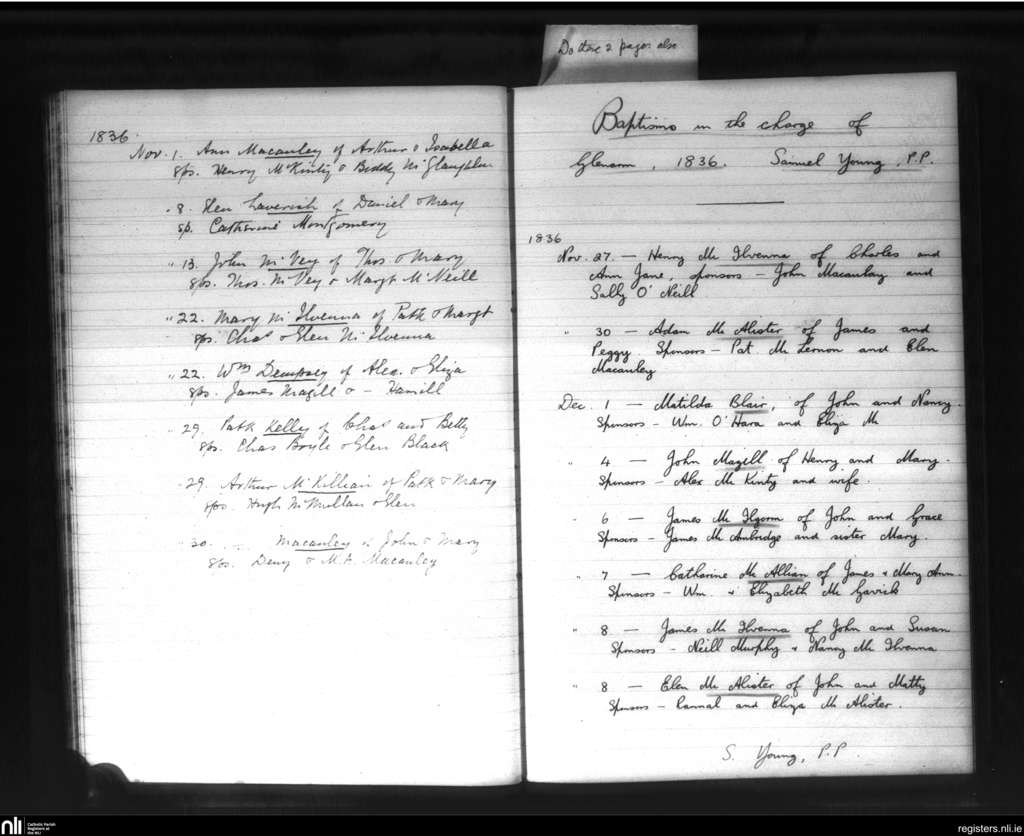 Do these 2 pages also
1836
Nov. 1. Ann Macauley of Arthur & Isabella
Sps. Henry McKinty & Biddy
" 8. Elen Laverick of Daniel & Mary
sp. Catherine Montgomery
" 13. John McVey of Thos & Mary
Sps. Thos. McVey & Margt McNeill
" 22. Mary McIlvenna of Patk & Margt
Sps. Chas & Elen McIlvenna
" 22. Wm Dempsey of Alex. & Eliza
Sps. James Magill & - Hamill
" 29. Patk Kelly of Chas and Betty
Sps. Chas Boyle & Elen Black
" 29. Arthur McKillian of Patk & Mary
Sps. Hugh McMullan & Elen
" 30. ... Macauley of John & Mary
Sps. Deny & M.A. Macauley
Baptisms in the charge of
Glenarm, 1836. Samuel Young, P.P.
1836
Nov. 27. — Henry Mc Ilvenna of Charles and
Ann Jane, sponsors — John Macaulay and
Sally O'Neill
" 30 — Adam Mc Alister of James and
Peggy Sponsors — Pat Mc Lernon and Elen
Macauley
Dec. 1 — Matilda Blair, of John and Nancy.
Sponsors — Wm. O'Hara and Eliza Mc
" 4 — John Magill of Henry and Mary.
Sponsors — Alex Mc Kinty and wife.
" 6 — James Mc Ilgorm of John and Grace
Sponsors — James Mc Ambridge and sister Mary.
" 7 — Catharine Mc Allian of James & Mary Ann.
Sponsors — Wm. & Elizabeth Mc Garrick
" 8 — James Mc Ilvenna of John and Susan
Sponsors — Neill Murphy & Nancy Mc Ilvenna
" 8 — Elen Mc Alister of John and Matty
Sponsors — and Eliza Mc Alister.
S. Young, P.P.
nli Catholic Parish
Registers at
the NLI
registers.nli.ie